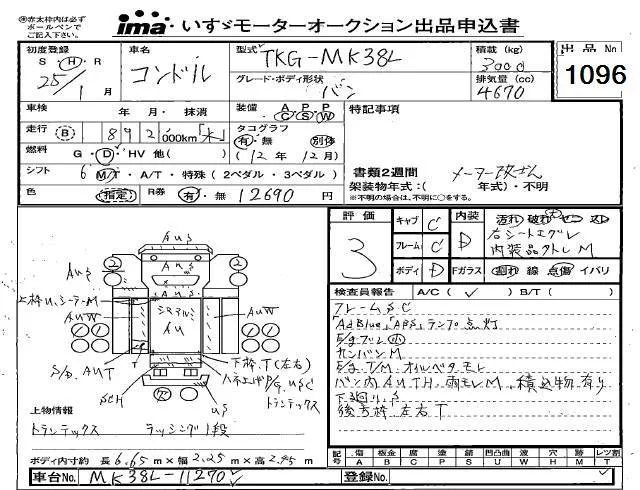 ※赤太枠内は必ず
ボールペンで
ご記入下さい。
ima いすゞモーターオークション出品申込書
初度登録 S・H・R 25/1月
車名 コンドル
型式 TKG-MK38L
積載 (kg) 3000
出品No 1096
グレード・ボディ形状 バン
排気量 (cc) 4670
車検 年・月・抹消
装備 A・P・P C・S・W
特記事項
走行 B 892,000km「木」
タコグラフ 有・無 別体
燃料 G・D・HV 他( )
(12年12月)
シフト 6 M/T・A/T・特殊(2ペダル・3ペダル)
書類2週間 メーター改ざん
架装物年式:( 年式)・不明
※不明の場合は、不明に○をする。
色 指定 R券 有・無 12690円
評価 3
キャブ C
フレーム C
ボディ D
内装 D 汚れ 破れ
右シートエグレ
内装品クトレM
Fガラス 割れ 線 点傷 イバリ
検査員報告 A/C( ✓ ) B/T( )
フレームSC
「AdBlue」「ABS」ランプ点灯
E/gブレ小
カンバンM
E/g.T/M.オイルベタモレ
バン内AUTH.雨モレM.積込物有り
下廻りS
後方枠左右T
AUS
2 2
AUS
AUS
上枠U、シーラーM
AUW
AUW
AU
S/B.AUT
T
下枠.T(左右)
P/G.USC
トランテックス
SCH
US
2 2
上物情報
トランテックス ラッシング1段
ボディ内寸約 長6.65m×幅2.25m×高2.45m
記号 傷 A 板金 B 腐 C 塗 P 錆 S 凹凸曲 U 波 W 穴 H 跡 M レツ割 T
車台No. MK38L-11270
登録No.